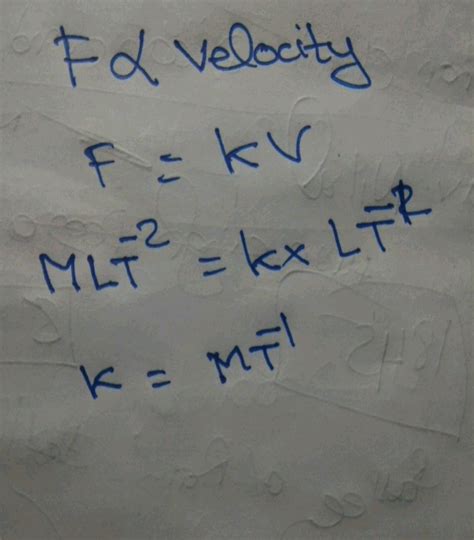 F ∝ velocity
F = kV
MLT⁻² = k× LT⁻¹
K = MT⁻¹